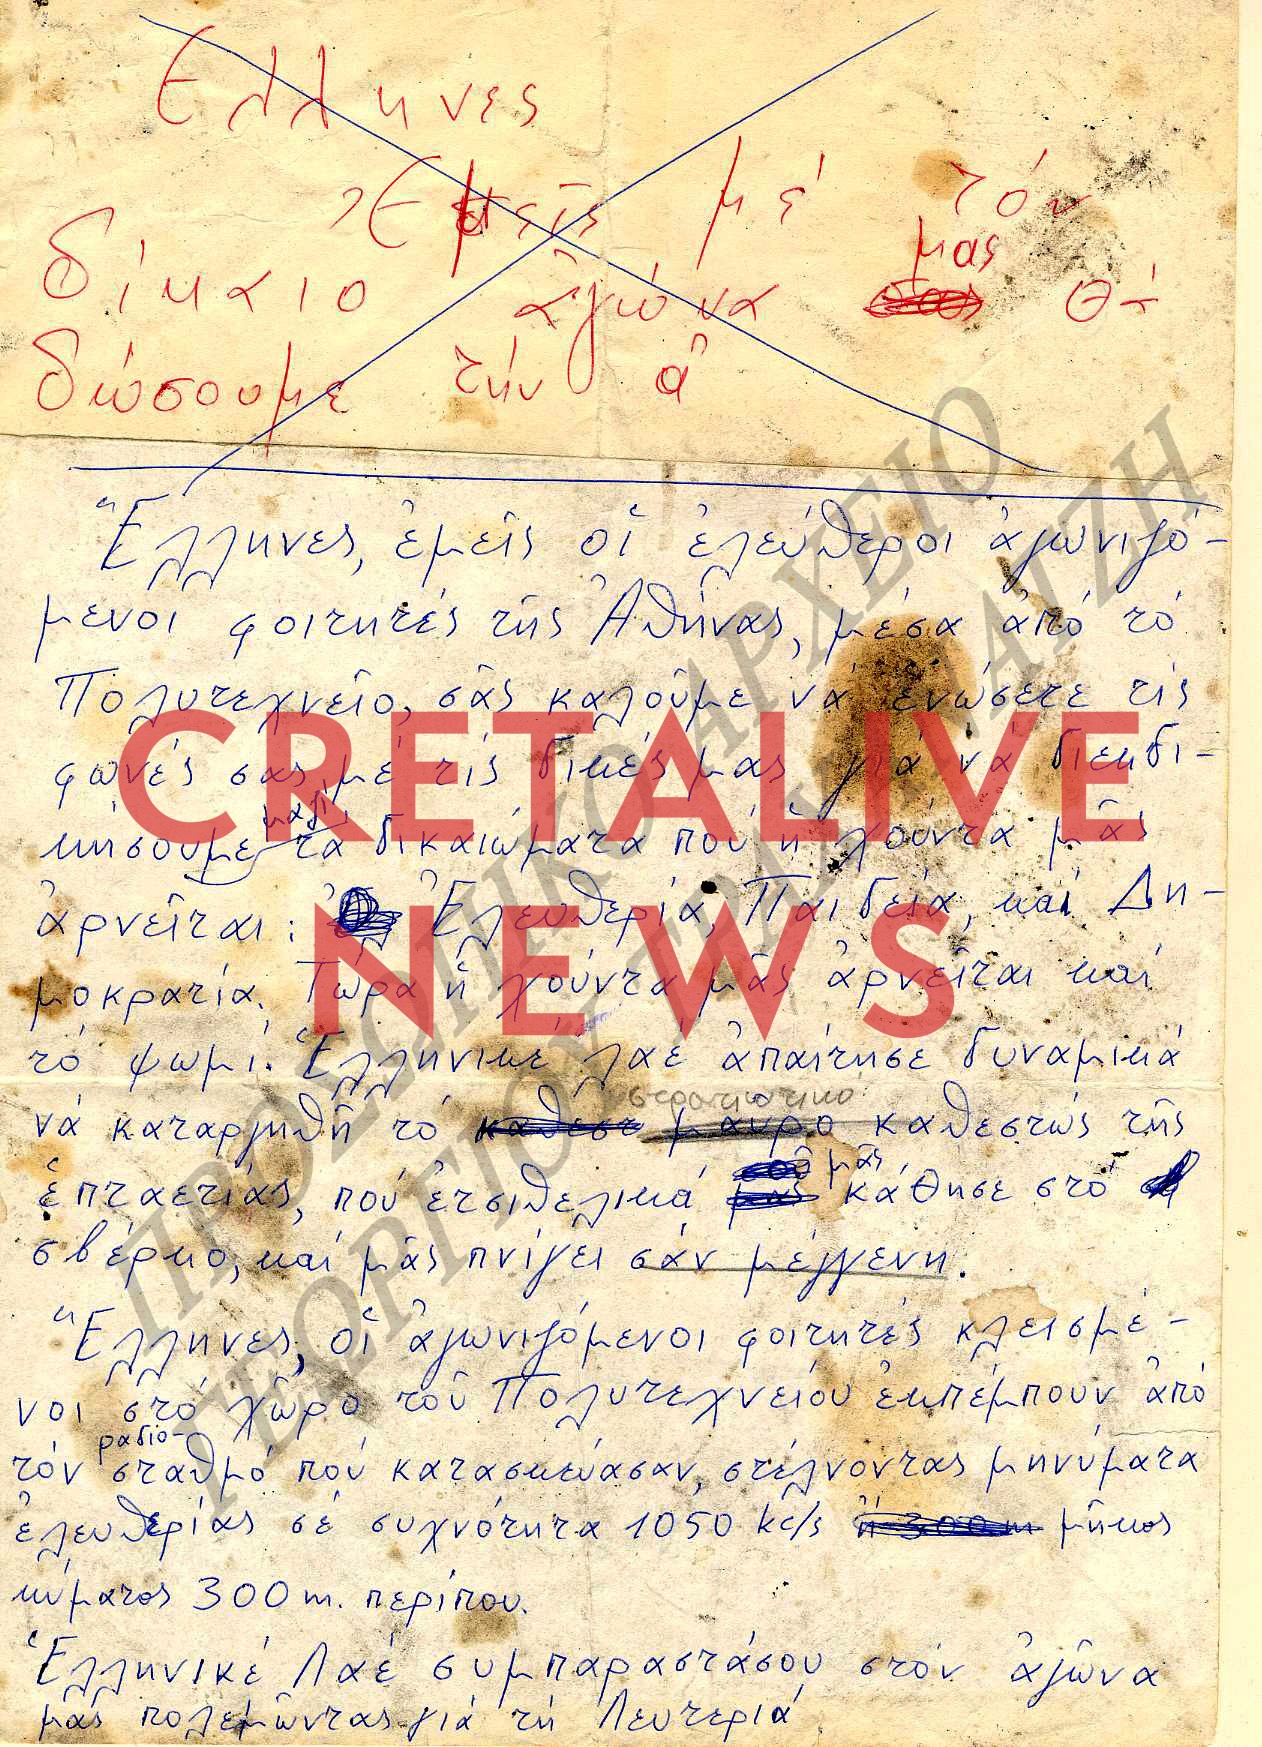 Ἕλληνες
Ἐμεῖς μέ τόν
μας
δίκαιο ἀγώνα σας θά
δώσουμε τήν ἀ
Ἕλληνες, ἐμεῖς οἱ ἐλεύθεροι ἀγωνιζό-
μενοι φοιτητές τῆς Ἀθήνας, μέσα ἀπό τό
Πολυτεχνεῖο, σᾶς καλοῦμε νά ἑνώσετε τίς
φωνές σας μέ τίς δικές μας γιά νά διεκδι-
μαζί
κήσουμε τά δικαιώματα πού ἡ χούντα μᾶς
ἀρνεῖται: Ἐλευθερία, Παιδεία, καί Δη-
μοκρατία. Τώρα ἡ χούντα μᾶς ἀρνεῖται καί
τό ψωμί. Ἑλληνικέ λαέ ἀπαίτησε δυναμικά
στρατιωτικό
νά καταργηθῆ τό καθεστ μαυρο καθεστώς τῆς
μᾶς
ἑπταετίας, πού ἐτσιθελικά μας κάθησε στό
σβέρκο, καί μᾶς πνίγει σάν μέγγενη.
Ἕλληνες, οἱ ἀγωνιζόμενοι φοιτητές κλεισμέ-
νοι στό χῶρο τοῦ Πολυτεχνείου ἐκπέμπουν ἀπό
ραδιο-
τόν σταθμό πού κατασκεύασαν, στέλνοντας μηνύματα
ἐλευθερίας σέ συχνότητα 1050 kc/s ἤ 300 m μῆκος
κύματος 300 m. περίπου.
Ἑλληνικέ Λαέ συμπαραστάσου στόν ἀγῶνα
μας πολεμῶντας γιά τή Λευτεριά
CRETALIVE
NEWS
ΠΡΟΣΩΠΙΚΟ ΑΡΧΕΙΟ
ΓΕΩΡΓΙΟΥ